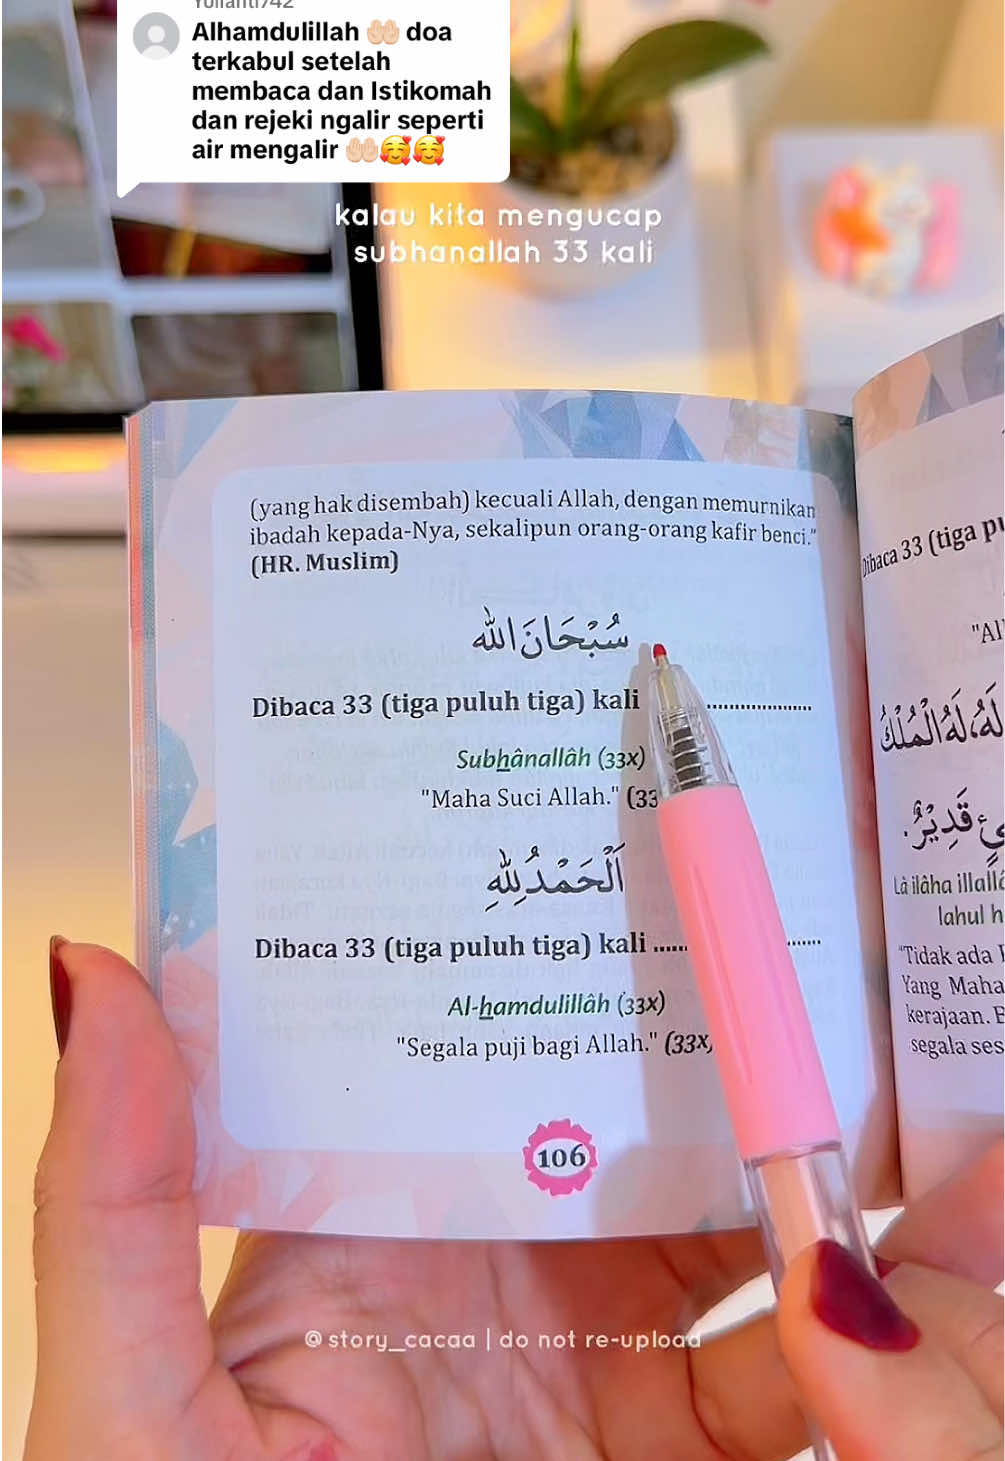 Yulianti742
Alhamdulillah 🤲🏻 doa
terkabul setelah
membaca dan Istikomah
dan rejeki ngalir seperti
air mengalir 🤲🏻🥰🥰
kalau kita mengucap
subhanallah 33 kali
(yang hak disembah) kecuali Allah, dengan memurnikan
ibadah kepada-Nya, sekalipun orang-orang kafir benci."
(HR. Muslim)
سُبْحَانَ اللّٰه
Dibaca 33 (tiga puluh tiga) kali ....................
Subhânallâh (33x)
"Maha Suci Allah." (33
اَلْحَمْدُ لِلّٰهِ
Dibaca 33 (tiga puluh tiga) kali ...... ......
Al-hamdulillâh (33x)
"Segala puji bagi Allah." (33x)
106
Dibaca 33 (tiga pu
"Al
لَهُ، لَهُ الْمُلْكُ
قَدِيْرٌ.
Lâ ilâha illall
lahul h
"Tidak ada
Yang Maha
kerajaan.
segala ses
@story_cacaa | do not re-upload